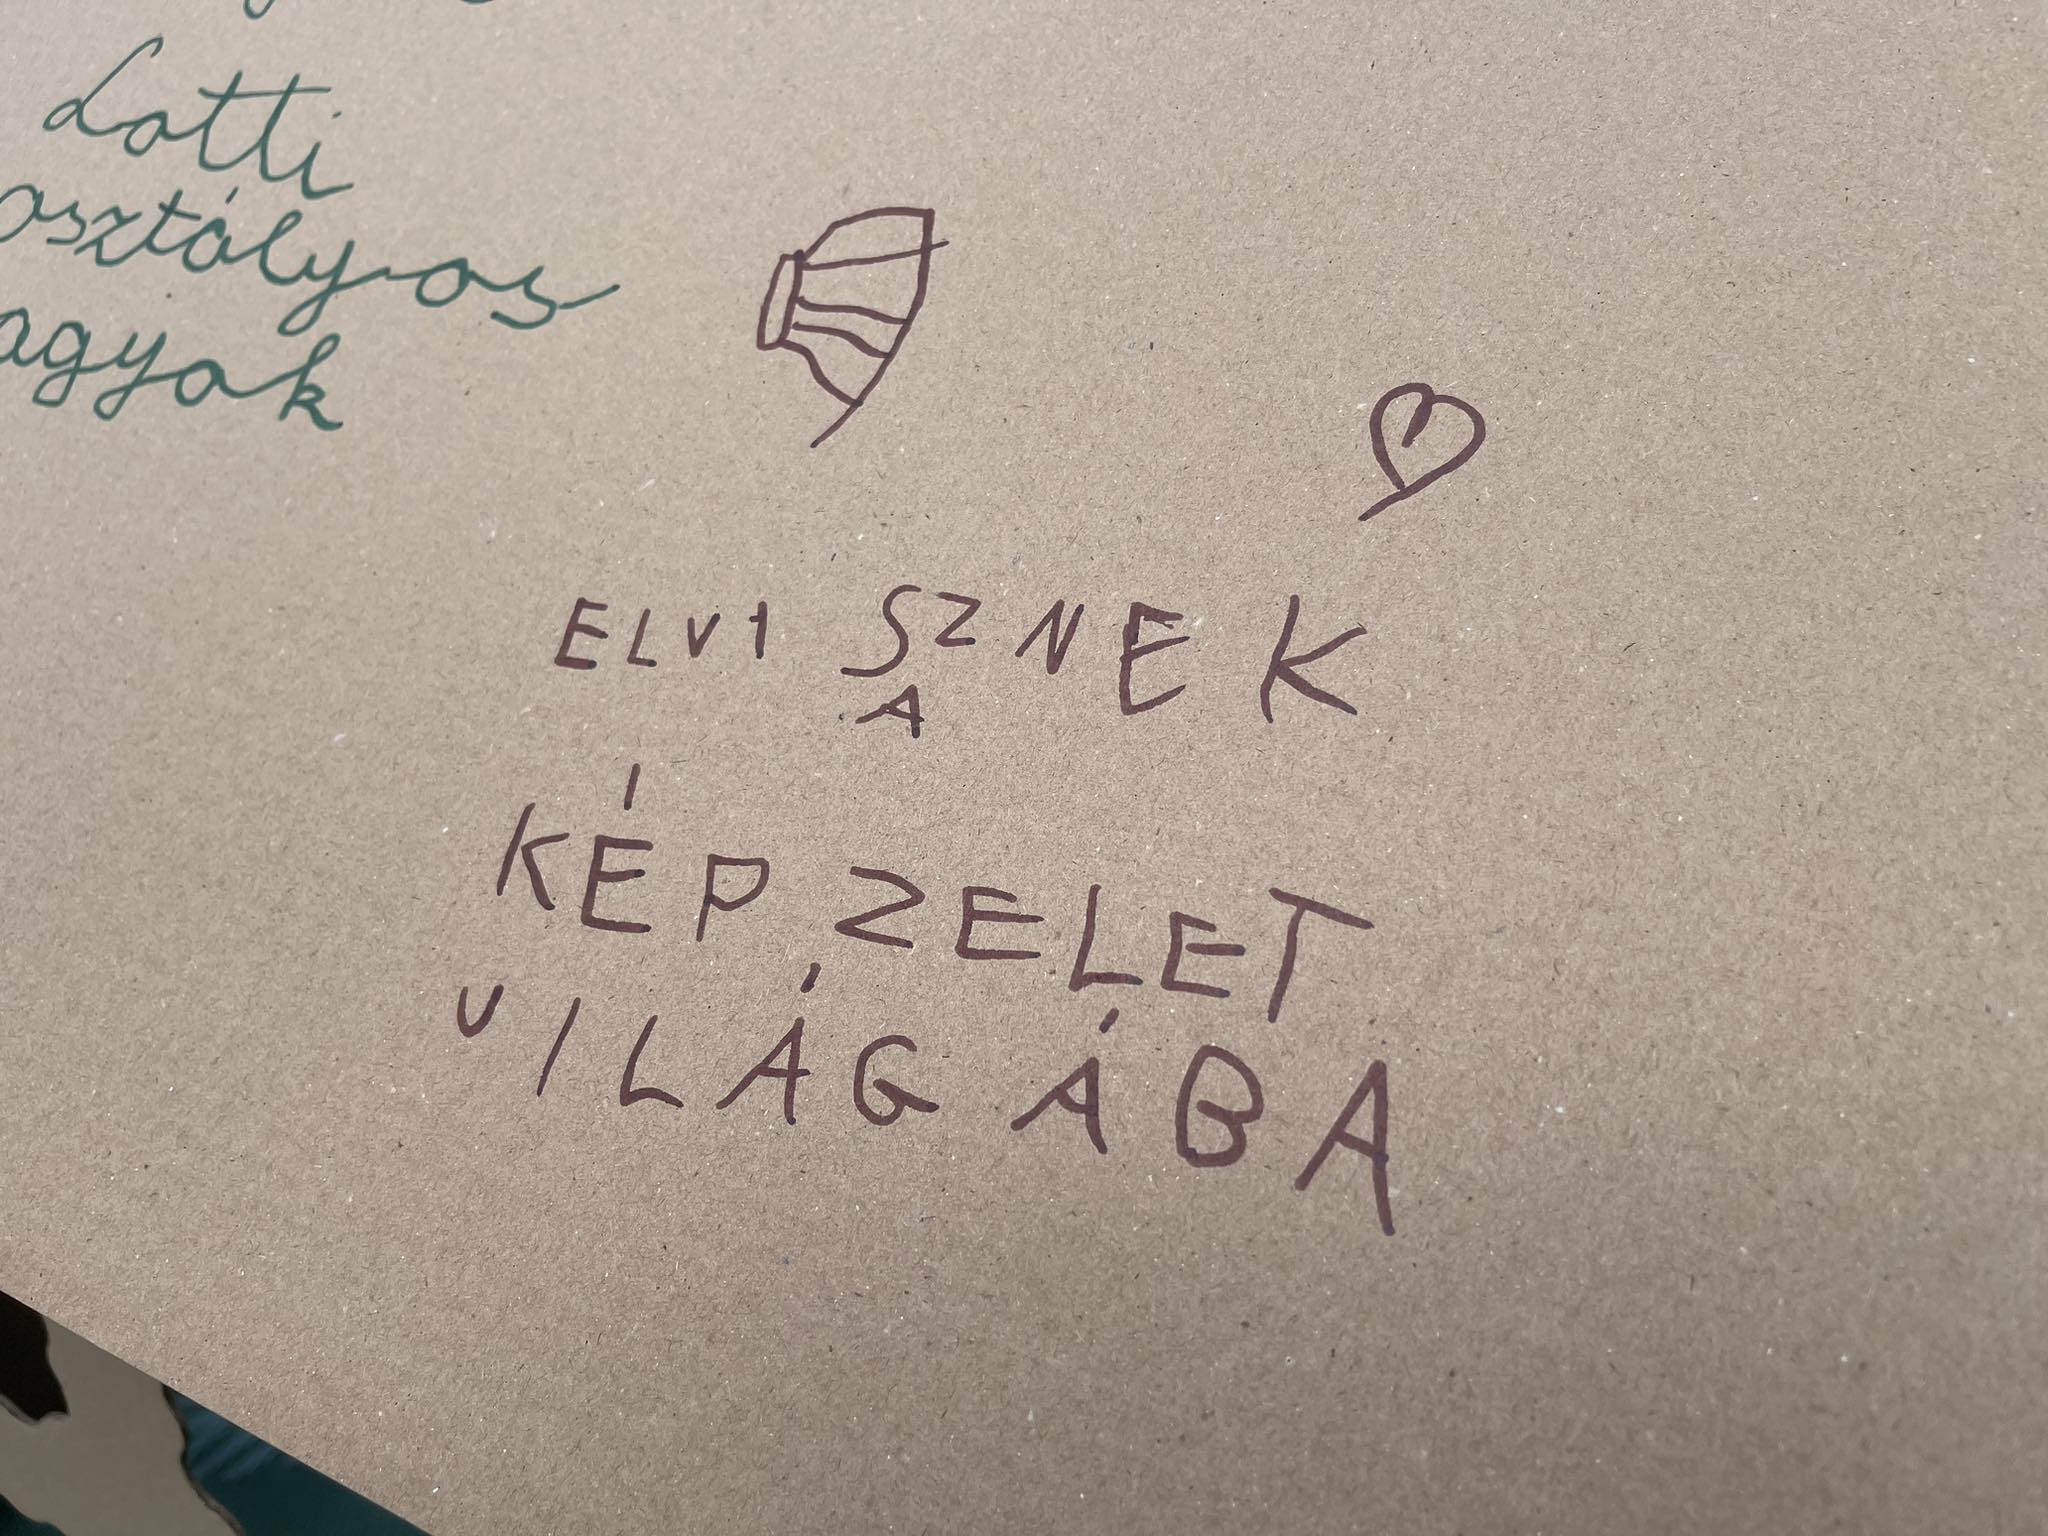 Lotti
osztályos
agyok
ELVI SZNEK
A
KÉPZELET
VILÁGÁBA